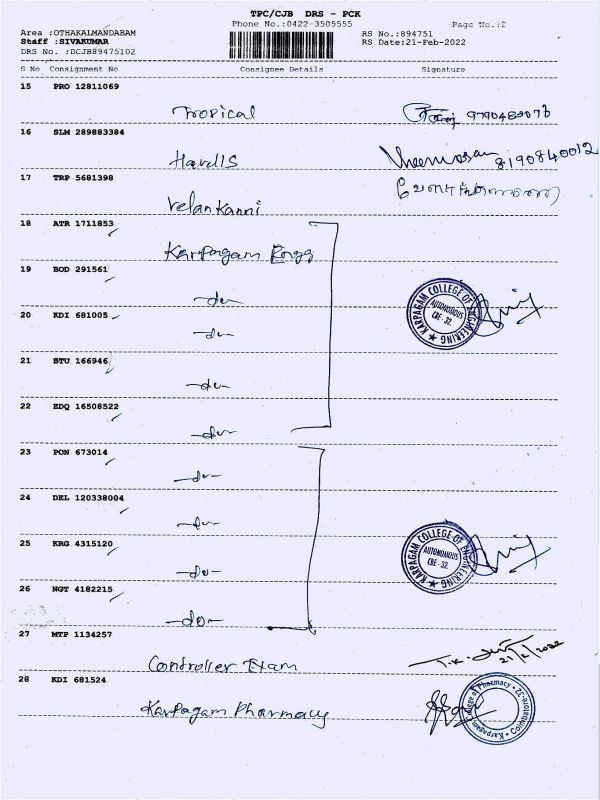 TPC/CJB DRS - PCK
Phone No.:0422-3505555
Page No.:2
Area :OTHAKALMANDABAM
Staff :SIVAKUMAR
DRS No. :DCJB89475102
RS No.:894751
RS Date:21-Feb-2022
S No Consignment No Consignee Details Signature
15 PRO 12811069
Tropical
16 SLM 289883384
Hardls 8190840012
17 TRP 5681398
Velankanni
18 ATR 1711853
Karpagam Engg
19 BOD 291561
-do-
KARPAGAM COLLEGE OF ENGINEERING
AUTONOMOUS
CBE - 32.
20 KDI 681005
-do-
21 BTU 166946
-do-
22 EDQ 16508522
-do-
23 PON 673014
-do-
24 DEL 120338004
-do-
25 KRG 4315120
-do-
KARPAGAM COLLEGE OF ENGINEERING
AUTONOMOUS
CBE - 32.
26 NGT 4182215
-do-
27 MTP 1134257
Controller Exam 21/2/2022
28 KDI 681524
Karpagam Pharmacy
Karpagam College of Pharmacy • Coimbatore-32 •